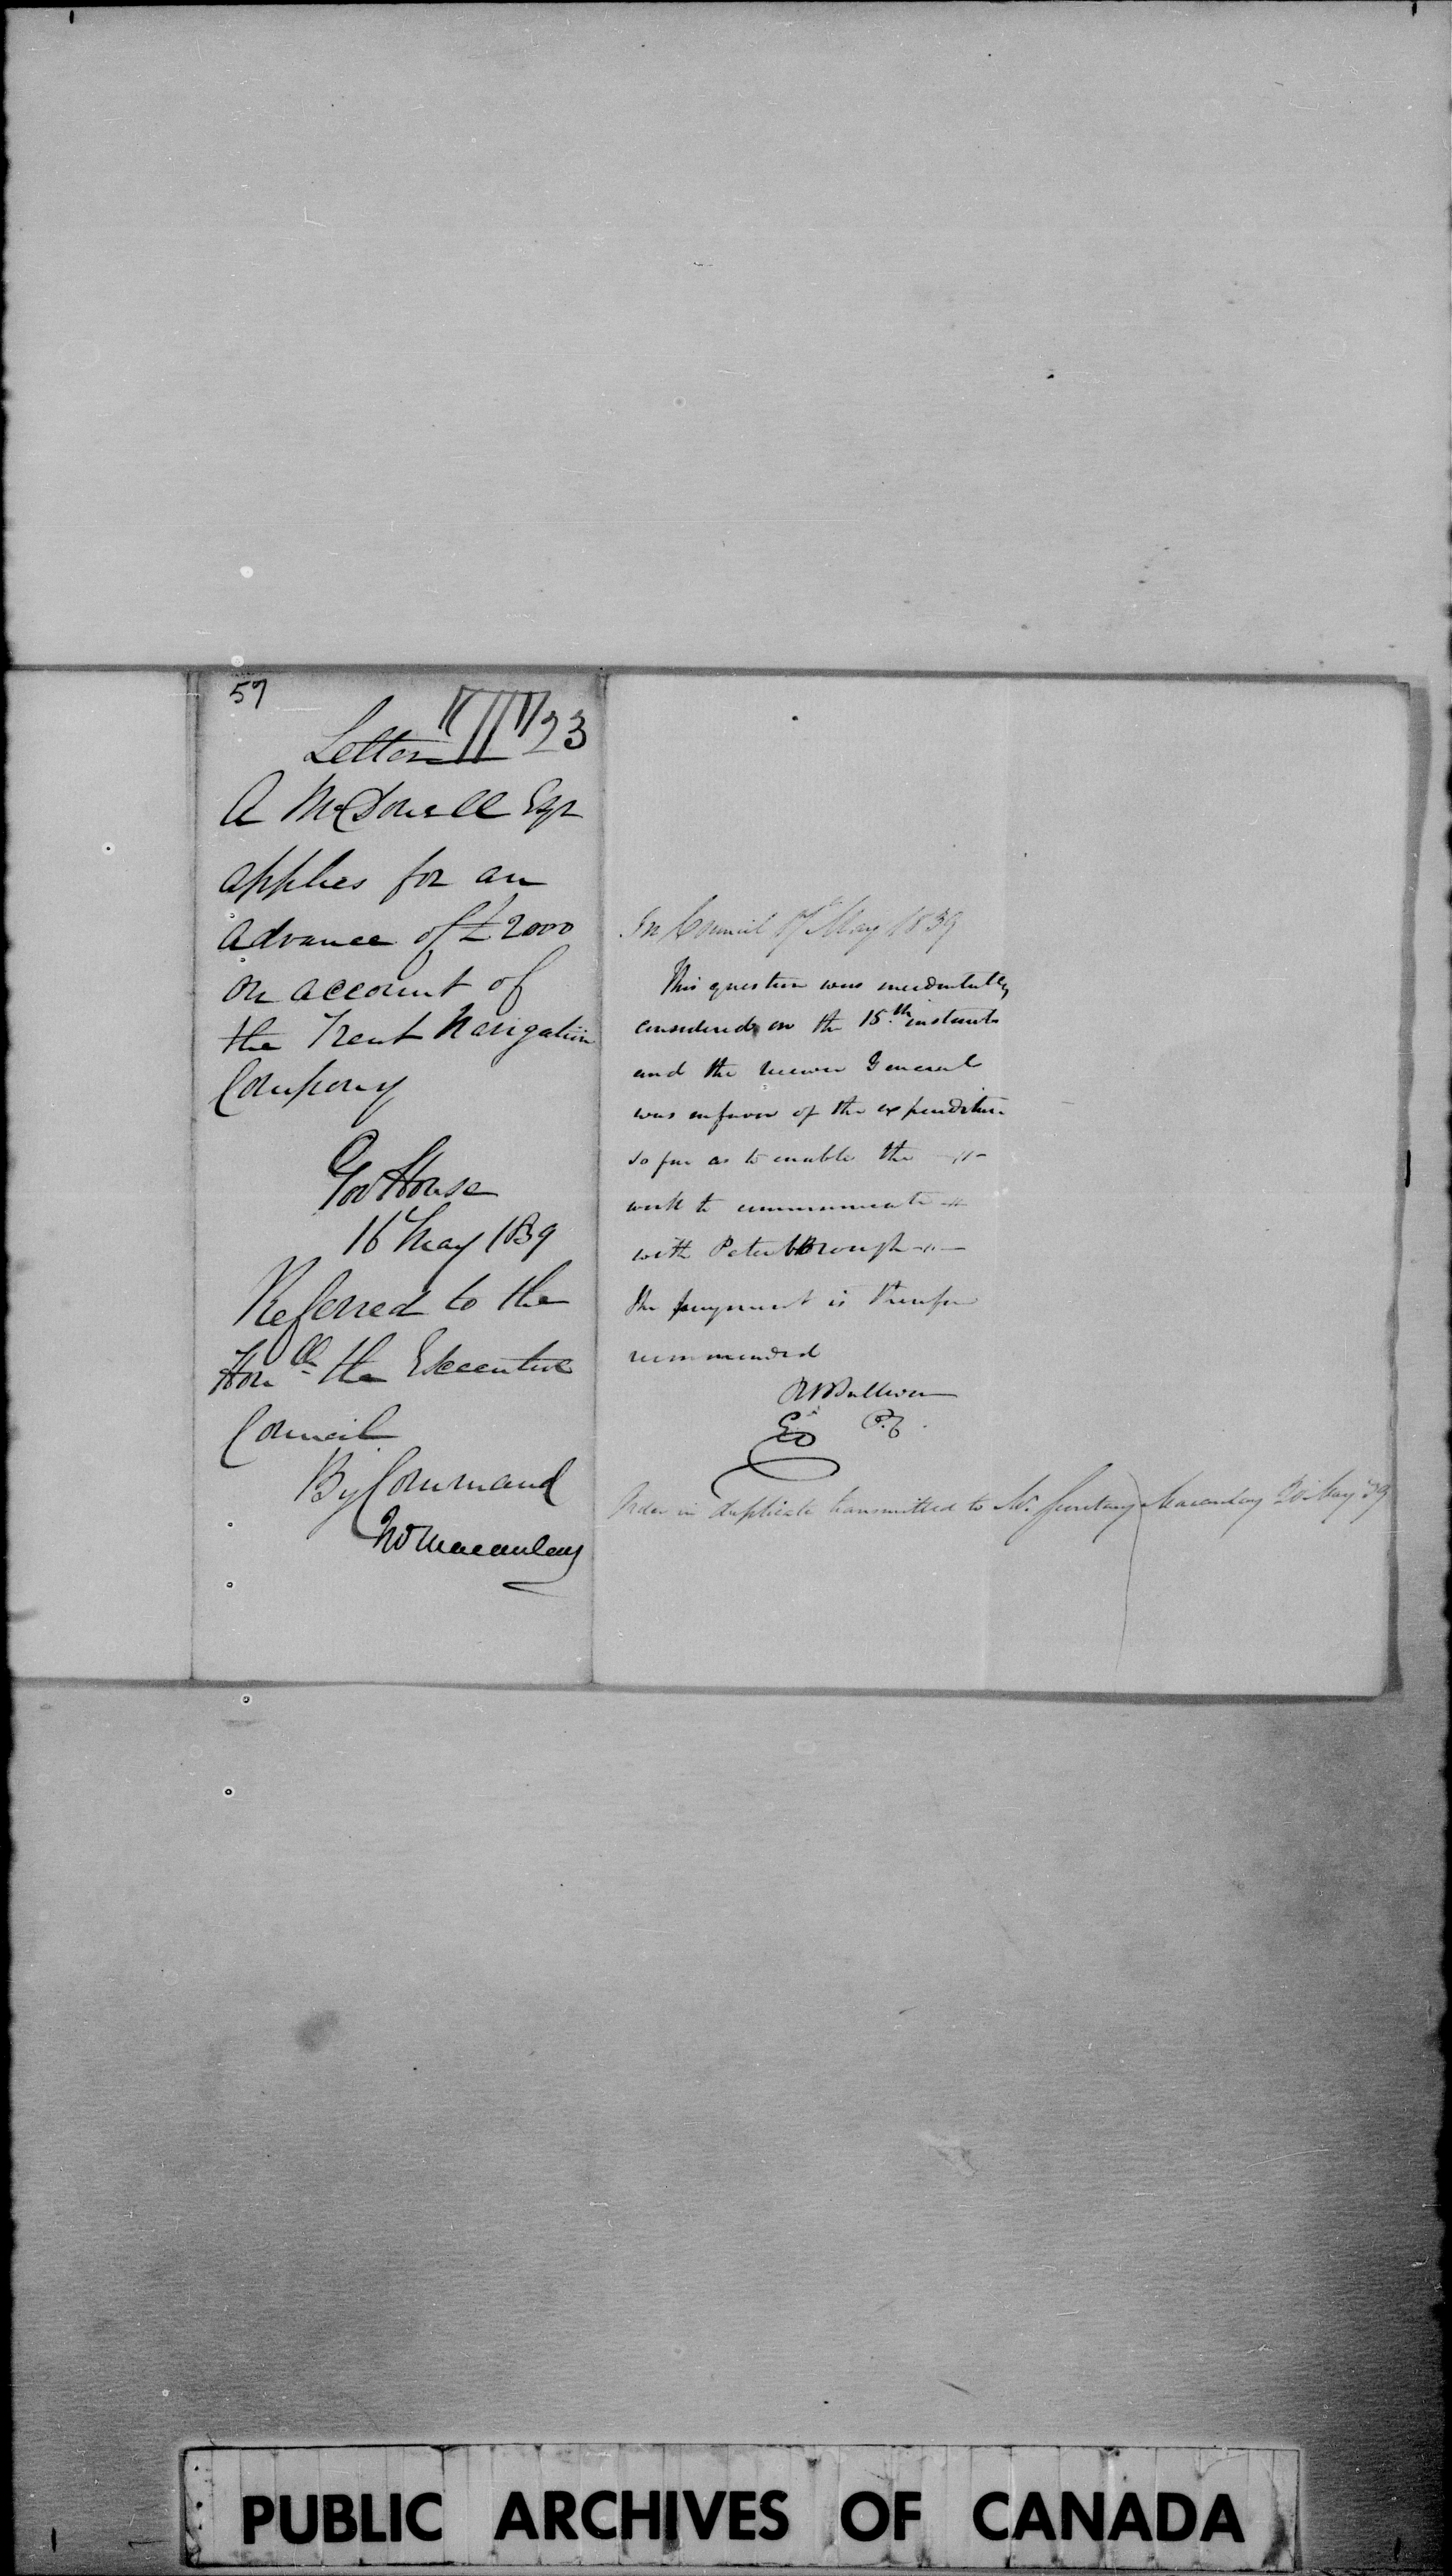 57
Letter 23
A McDonell Esqr
applies for an
advance of £2000
on account of
the Trent Navigation
Company
Gov House
16 May 1839
Referred to the
Honble the Executive
Council
By Command
Jno Macaulay
In Council 17 May 1839
This question was incidentally
considered on the 15th instant
and the receiver General
was in favor of the expenditure
so far as to enable the
work to communicate
with Peterborough
The payment is therefore
recommended
RBSullivan
P.C.
Order in duplicate transmitted to Mr Secretary Macaulay 20 May 39
PUBLIC ARCHIVES OF CANADA